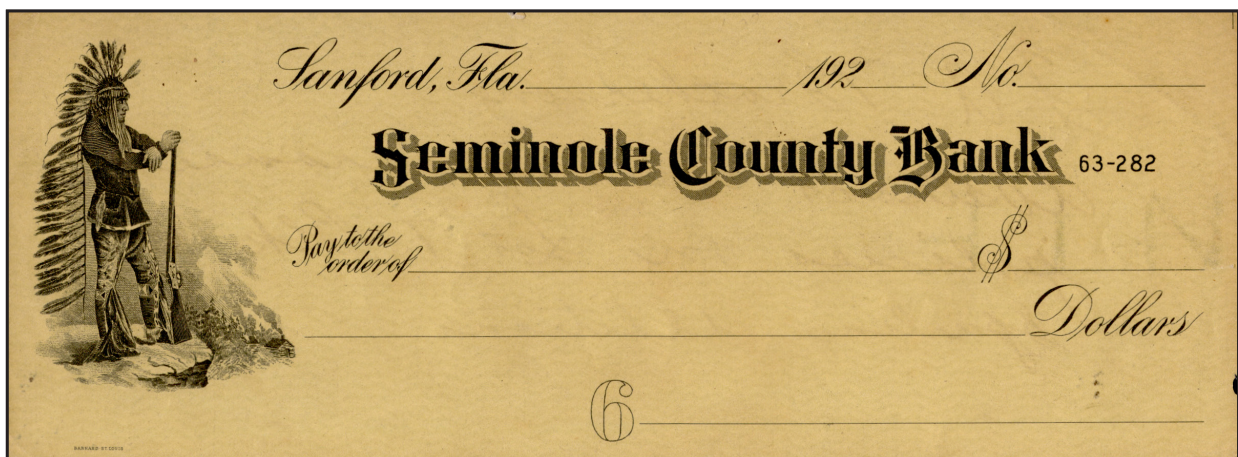 Sanford, Fla. 192 No.
Seminole County Bank 63-282
Pay to the
order of $
Dollars
6
BARNARD-ST.LOUIS